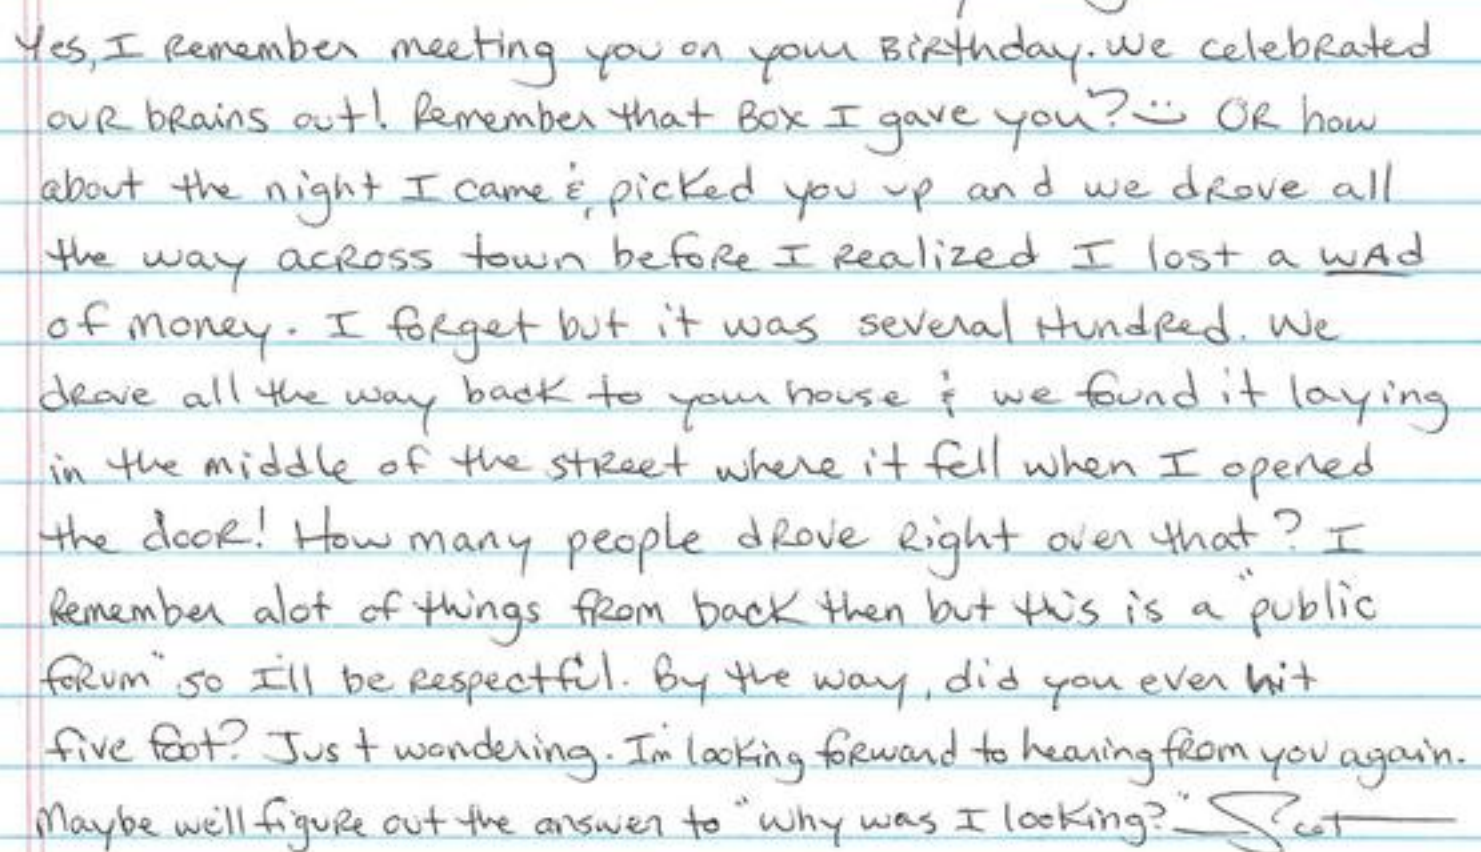 Yes, I Remember meeting you on your BiRthday. We celebRated
ouR bRains out! Remember that Box I gave you? :) OR how
about the night I came & picked you up and we dRove all
the way acRoss town befoRe I Realized I lost a wAd
of money. I foRget but it was several HundRed. We
dRove all the way back to your house & we found it laying
in the middle of the stReet where it fell when I opened
the dooR! How many people dRove Right over that? I
Remember alot of things fRom back then but this is a "public
foRum" so I'll be Respectful. By the way, did you ever hit
five foot? Just wondering. I'm looking foRward to hearing fRom you again.
Maybe we'll figuRe out the answer to "why was I looking?" Scot